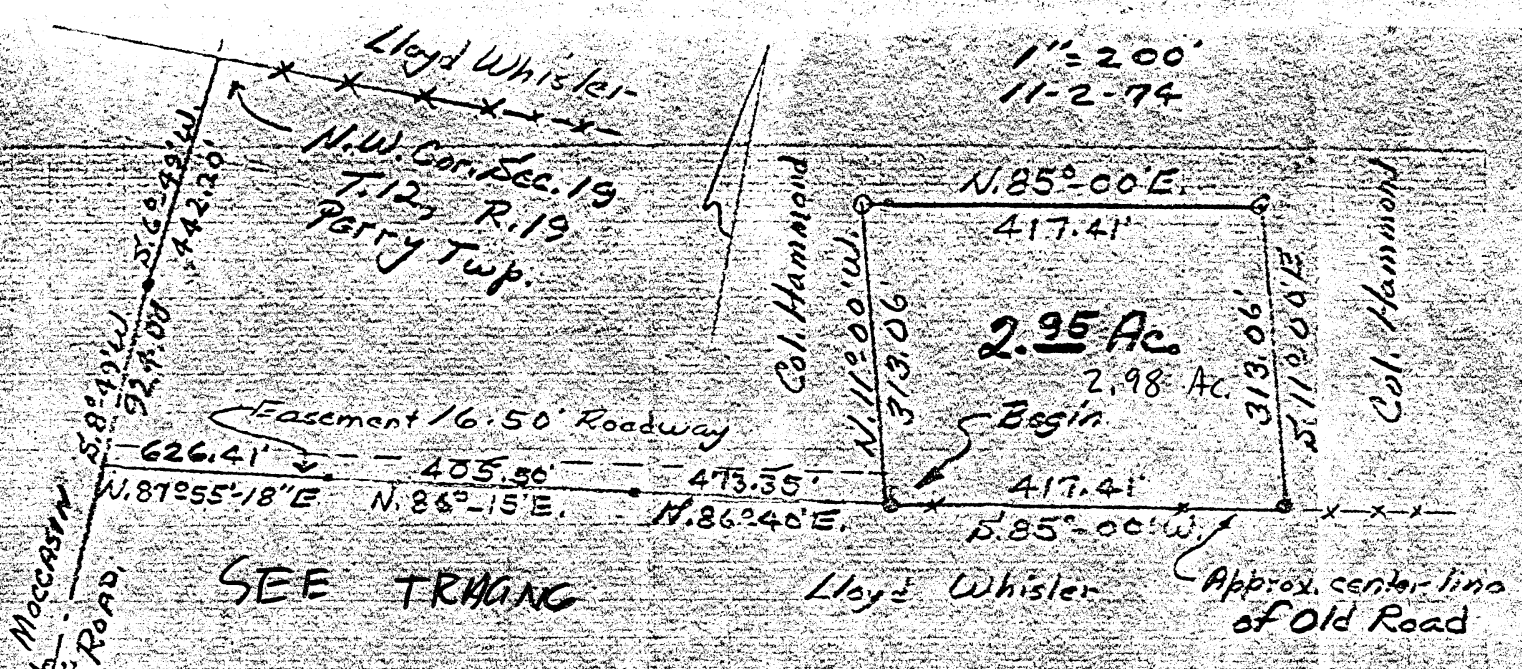 Lloyd Whisler
1"=200'
11-2-74
N.W. Cor. Sec. 19
T.12, R.19
Perry Twp.
S.6°-49'W.
442.20'
S.8°-49'W
924.00
Col. Hammond
N.85°-00'E.
417.41'
N.11°-00'W.
313.06'
2.95 Ac.
2.98 Ac.
313.06'
S.11°-00'E
Col. Hammond
Begin
Easement 16.50' Roadway
626.41'
N.87°55'-18"E
405.50'
N.86°-15'E.
473.35'
N.86°-40'E.
417.41'
S.85°-00'W.
MOCCASIN
ROAD.
SEE TRACING
Lloyd Whisler
Approx. center-line
of Old Road